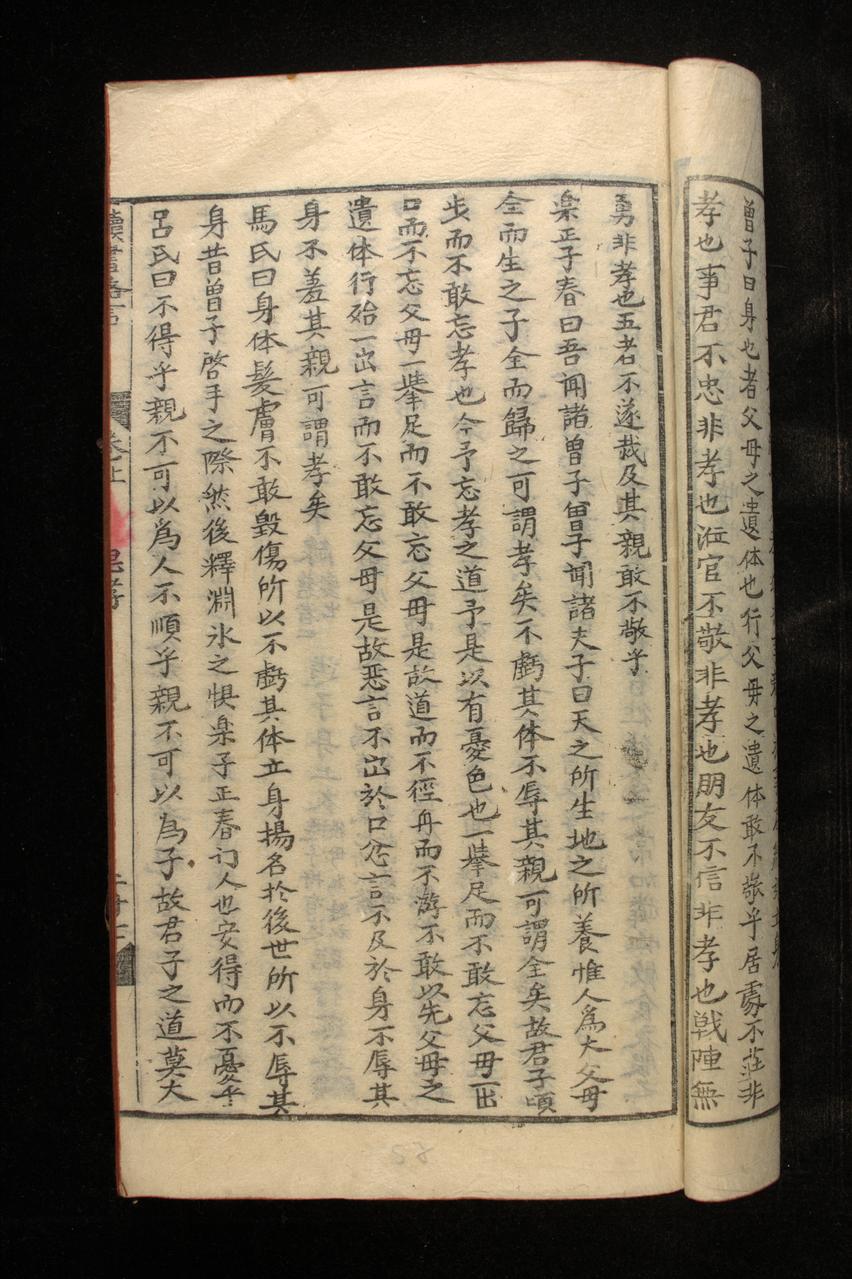 曾子曰身也者父母之遺体也行父母之遺体敢不敬乎居處不莊非
孝也事君不忠非孝也涖官不敬非孝也朋友不信非孝也戰陣無
勇非孝也五者不遂烖及其親敢不敬乎
樂正子春曰吾聞諸曾子曾子聞諸夫子曰天之所生地之所養惟人爲大父母
全而生之子全而歸之可謂孝矣不虧其体不辱其親可謂全矣故君子頃
步而不敢忘孝也今予忘孝之道予是以有憂色也一擧足而不敢忘父母一出
口而不忘父母一擧足而不敢忘父母是故道而不徑舟而不游不敢以先父母之
遺体行殆一出言而不敢忘父母是故惡言不出於口忿言不及於身不辱其
身不羞其親可謂孝矣
馬氏曰身体髮膚不敢毀傷所以不虧其体立身揚名於後世所以不辱其
身昔曾子啓手之際然後釋淵氷之惧樂子正春门人也安得而不憂乎
呂氏曰不得乎親不可以爲人不順乎親不可以為子故君子之道莫大
讀書
卷上